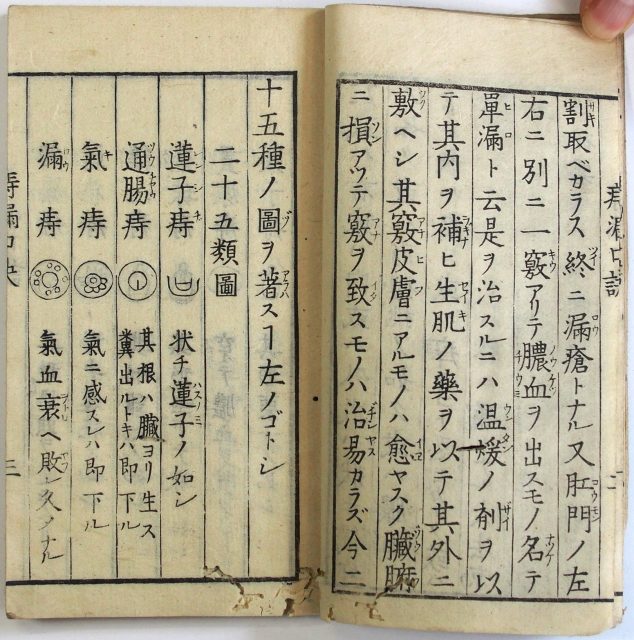 割取ベカラス終ニ漏瘡トナル又肛門ノ左
右ニ別ニ一竅アリテ膿血ヲ出スモノ名テ
單漏ト云是ヲ治スルニハ温煖ノ剤ヲ以
テ其内ヲ補ヒ生肌ノ藥ヲ以テ其外ニ
敷ヘシ其竅皮膚ニアルモノハ愈ヤスク臓腑
ニ損アツテ竅ヲ致スモノハ治易カラズ今二
十五種ノ圖ヲ著スヿ左ノゴトシ
二十五類圖
蓮子痔 状チ蓮子ノ如シ
通腸痔 其根ハ臓ヨリ生ス
糞出ルトキハ即下ル
氣痔 氣ニ感スレハ即下ル
漏痔 氣血衰ヘ敗レ久ノナル
三